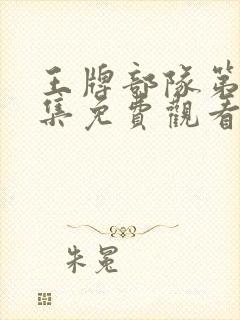 王牌部隊第
集免費觀看
朱冕